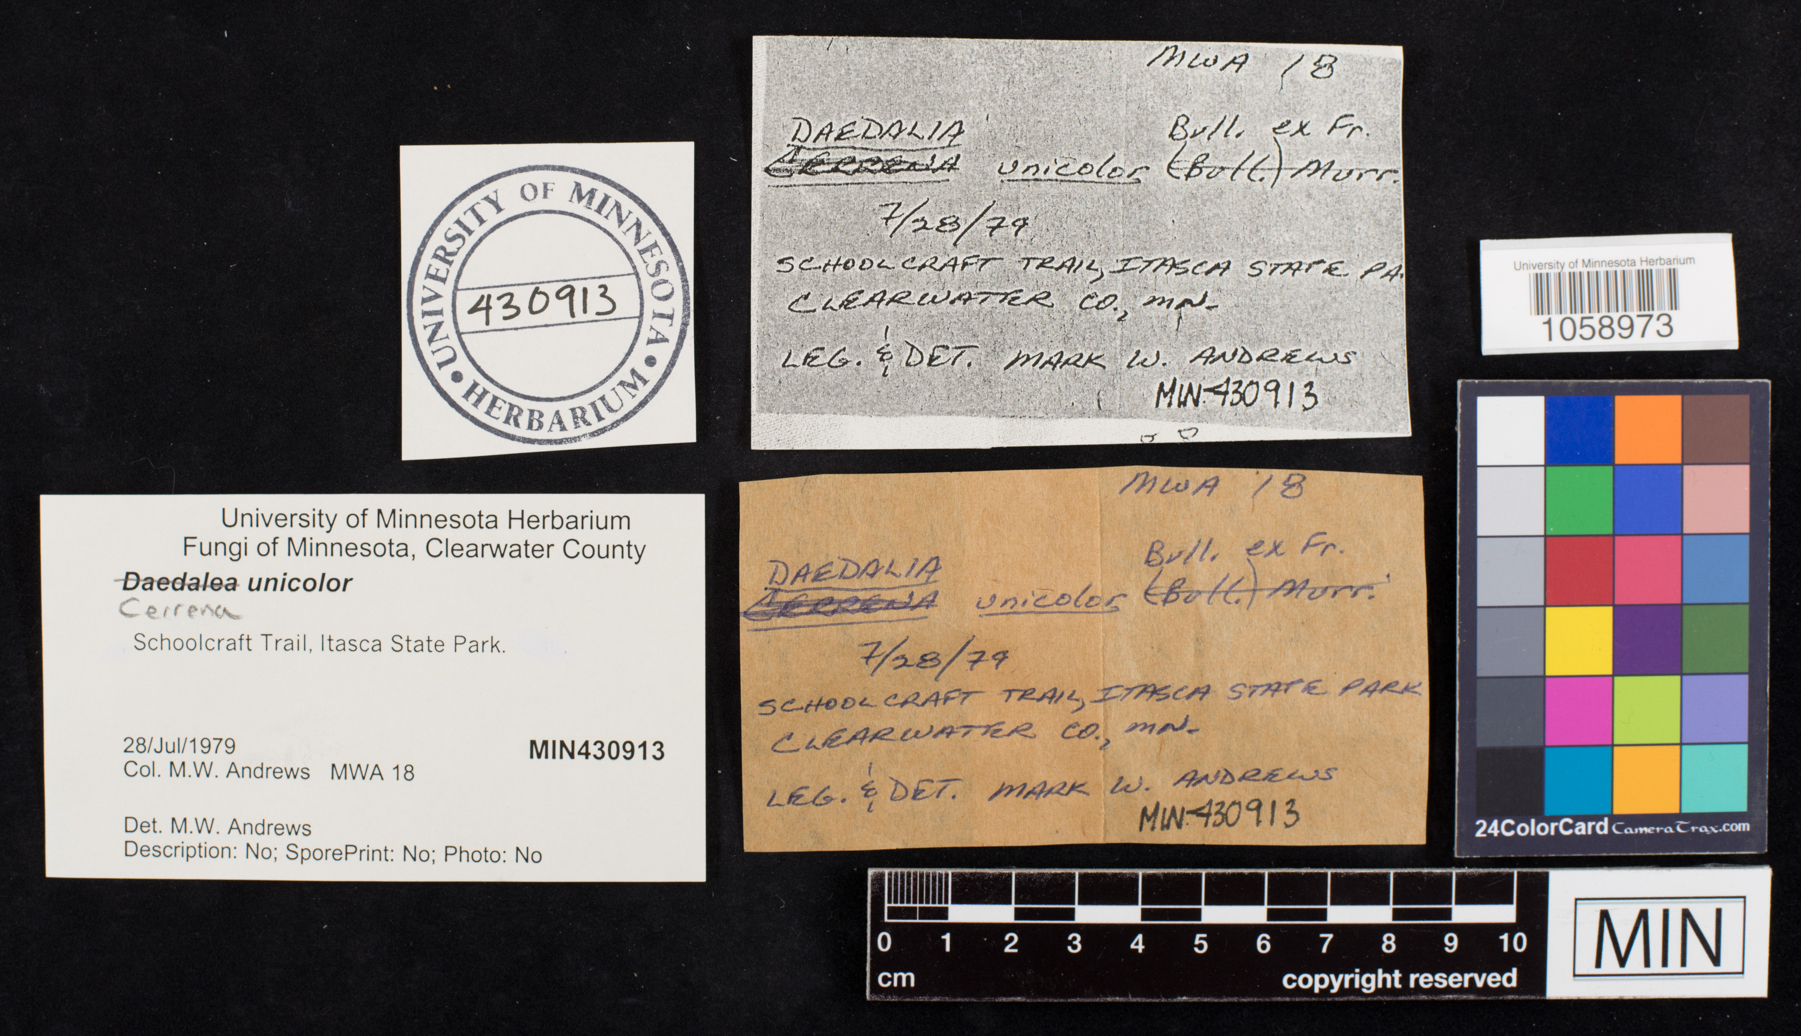 UNIVERSITY OF MINNESOTA
HERBARIUM
430913
MWA 18
DAEDALIA Bull. ex Fr.
CERRENA unicolor (Bull.) Murr.
7/28/79
SCHOOLCRAFT TRAIL, ITASCA STATE PA
CLEARWATER CO., MN.
LEG. & DET. MARK W. ANDREWS
MIN-430913
University of Minnesota Herbarium
1058973
University of Minnesota Herbarium
Fungi of Minnesota, Clearwater County
Daedalea unicolor
Cerrena
Schoolcraft Trail, Itasca State Park.
28/Jul/1979
MIN430913
Col. M.W. Andrews MWA 18
Det. M.W. Andrews
Description: No; SporePrint: No; Photo: No
MWA 18
DAEDALIA Bull. ex Fr.
CERRENA unicolor (Bull.) Murr.
7/28/79
SCHOOLCRAFT TRAIL, ITASCA STATE PARK
CLEARWATER CO., MN.
LEG. & DET. MARK W. ANDREWS
MIN-430913
24ColorCard CameraTrax.com
0 1 2 3 4 5 6 7 8 9 10
cm copyright reserved
MIN